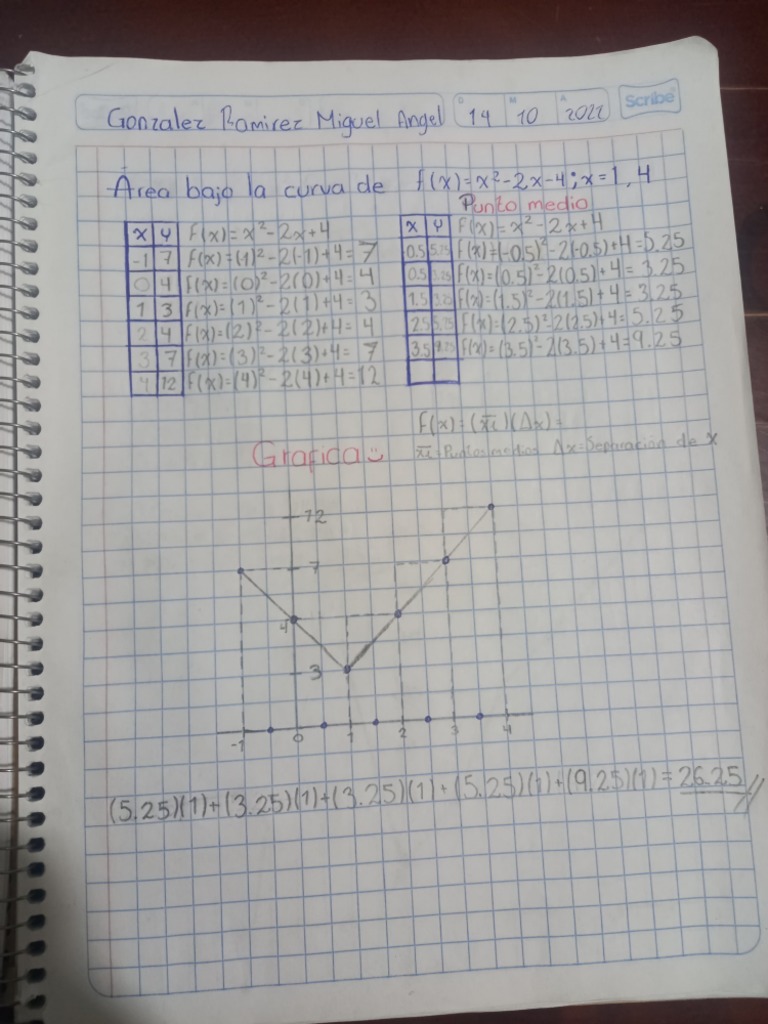 Gonzalez Ramirez Miguel Angel
D 14 M 10 A 2022
Scribe
Área bajo la curva de f(x)=x²-2x-4; x=1,4
Punto medio
x y f(x)=x²-2x+4
-1 7 f(x)=(-1)²-2(-1)+4=7
0 4 f(x)=(0)²-2(0)+4=4
1 3 f(x)=(1)²-2(1)+4=3
2 4 f(x)=(2)²-2(2)+4=4
3 7 f(x)=(3)²-2(3)+4=7
4 12 f(x)=(4)²-2(4)+4=12
x y f(x)=x²-2x+4
0.5 5.25 f(x)=(-0.5)²-2(-0.5)+4=5.25
0.5 3.25 f(x)=(0.5)²-2(0.5)+4=3.25
1.5 3.25 f(x)=(1.5)²-2(1.5)+4=3.25
2.5 5.25 f(x)=(2.5)²-2(2.5)+4=5.25
3.5 9.25 f(x)=(3.5)²-2(3.5)+4=9.25
f(x)=(x̄i)(Δx)=
x̄i=Puntos medios Δx=Separación de x
Grafica
12
7
4
3
-1 0 1 2 3 4
(5.25)(1)+(3.25)(1)+(3.25)(1)+(5.25)(1)+(9.25)(1)=26.25